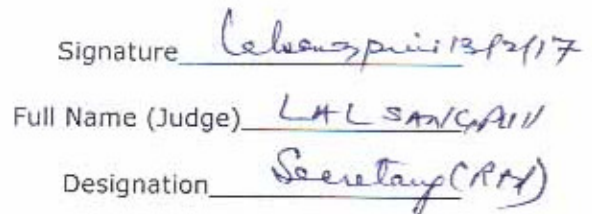 Signature Lalsangpuii 13/2/17
Full Name (Judge) LALSANGPUII
Designation Secretary (RM)